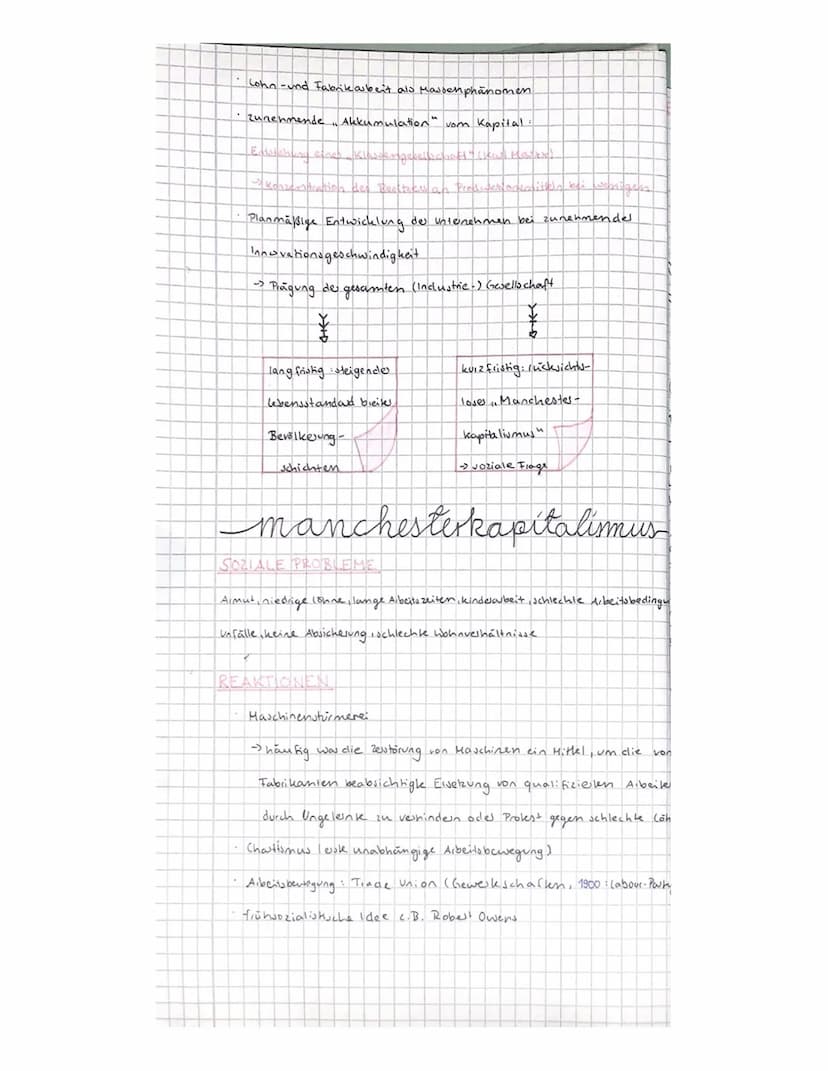 · Lohn- und Fabrikarbeit als Massenphänomen
· zunehmende „Akkumulation" vom Kapital:
Entstehung einer „Klassengesellschaft" (Karl Marx)
→ Konzentration des Besitzes an Produktionsmitteln bei wenigen
· Planmäßige Entwicklung der Unternehmen bei zunehmender
Innovationsgeschwindigkeit
→ Prägung der gesamten (Industrie-) Gesellschaft
langfristig: steigender
Lebensstandard breiter
Bevölkerung-
schichten
kurzfristig: rücksichts-
loser „Manchester-
kapitalismus"
→ soziale Frage
manchesterkapitalismus
SOZIALE PROBLEME
Armut, niedrige Löhne, lange Arbeitszeiten, Kinderarbeit, schlechte Arbeitsbedingu
Unfälle, keine Absicherung, schlechte Wohnverhältnisse
REAKTIONEN
· Maschinenstürmerei
→ häufig war die Zerstörung von Maschinen ein Mittel, um die von
Fabrikanten beabsichtigte Ersetzung von qualifizierten Arbeite
durch Ungelernte zu verhindern oder Protest gegen schlechte Löh
· Chartismus (erste unabhängige Arbeitsbewegung)
· Arbeitsbewegung: Trade Union (Gewerkschaften, 1900: Labour-Party
· frühsozialistische Idee z.B. Robert Owens